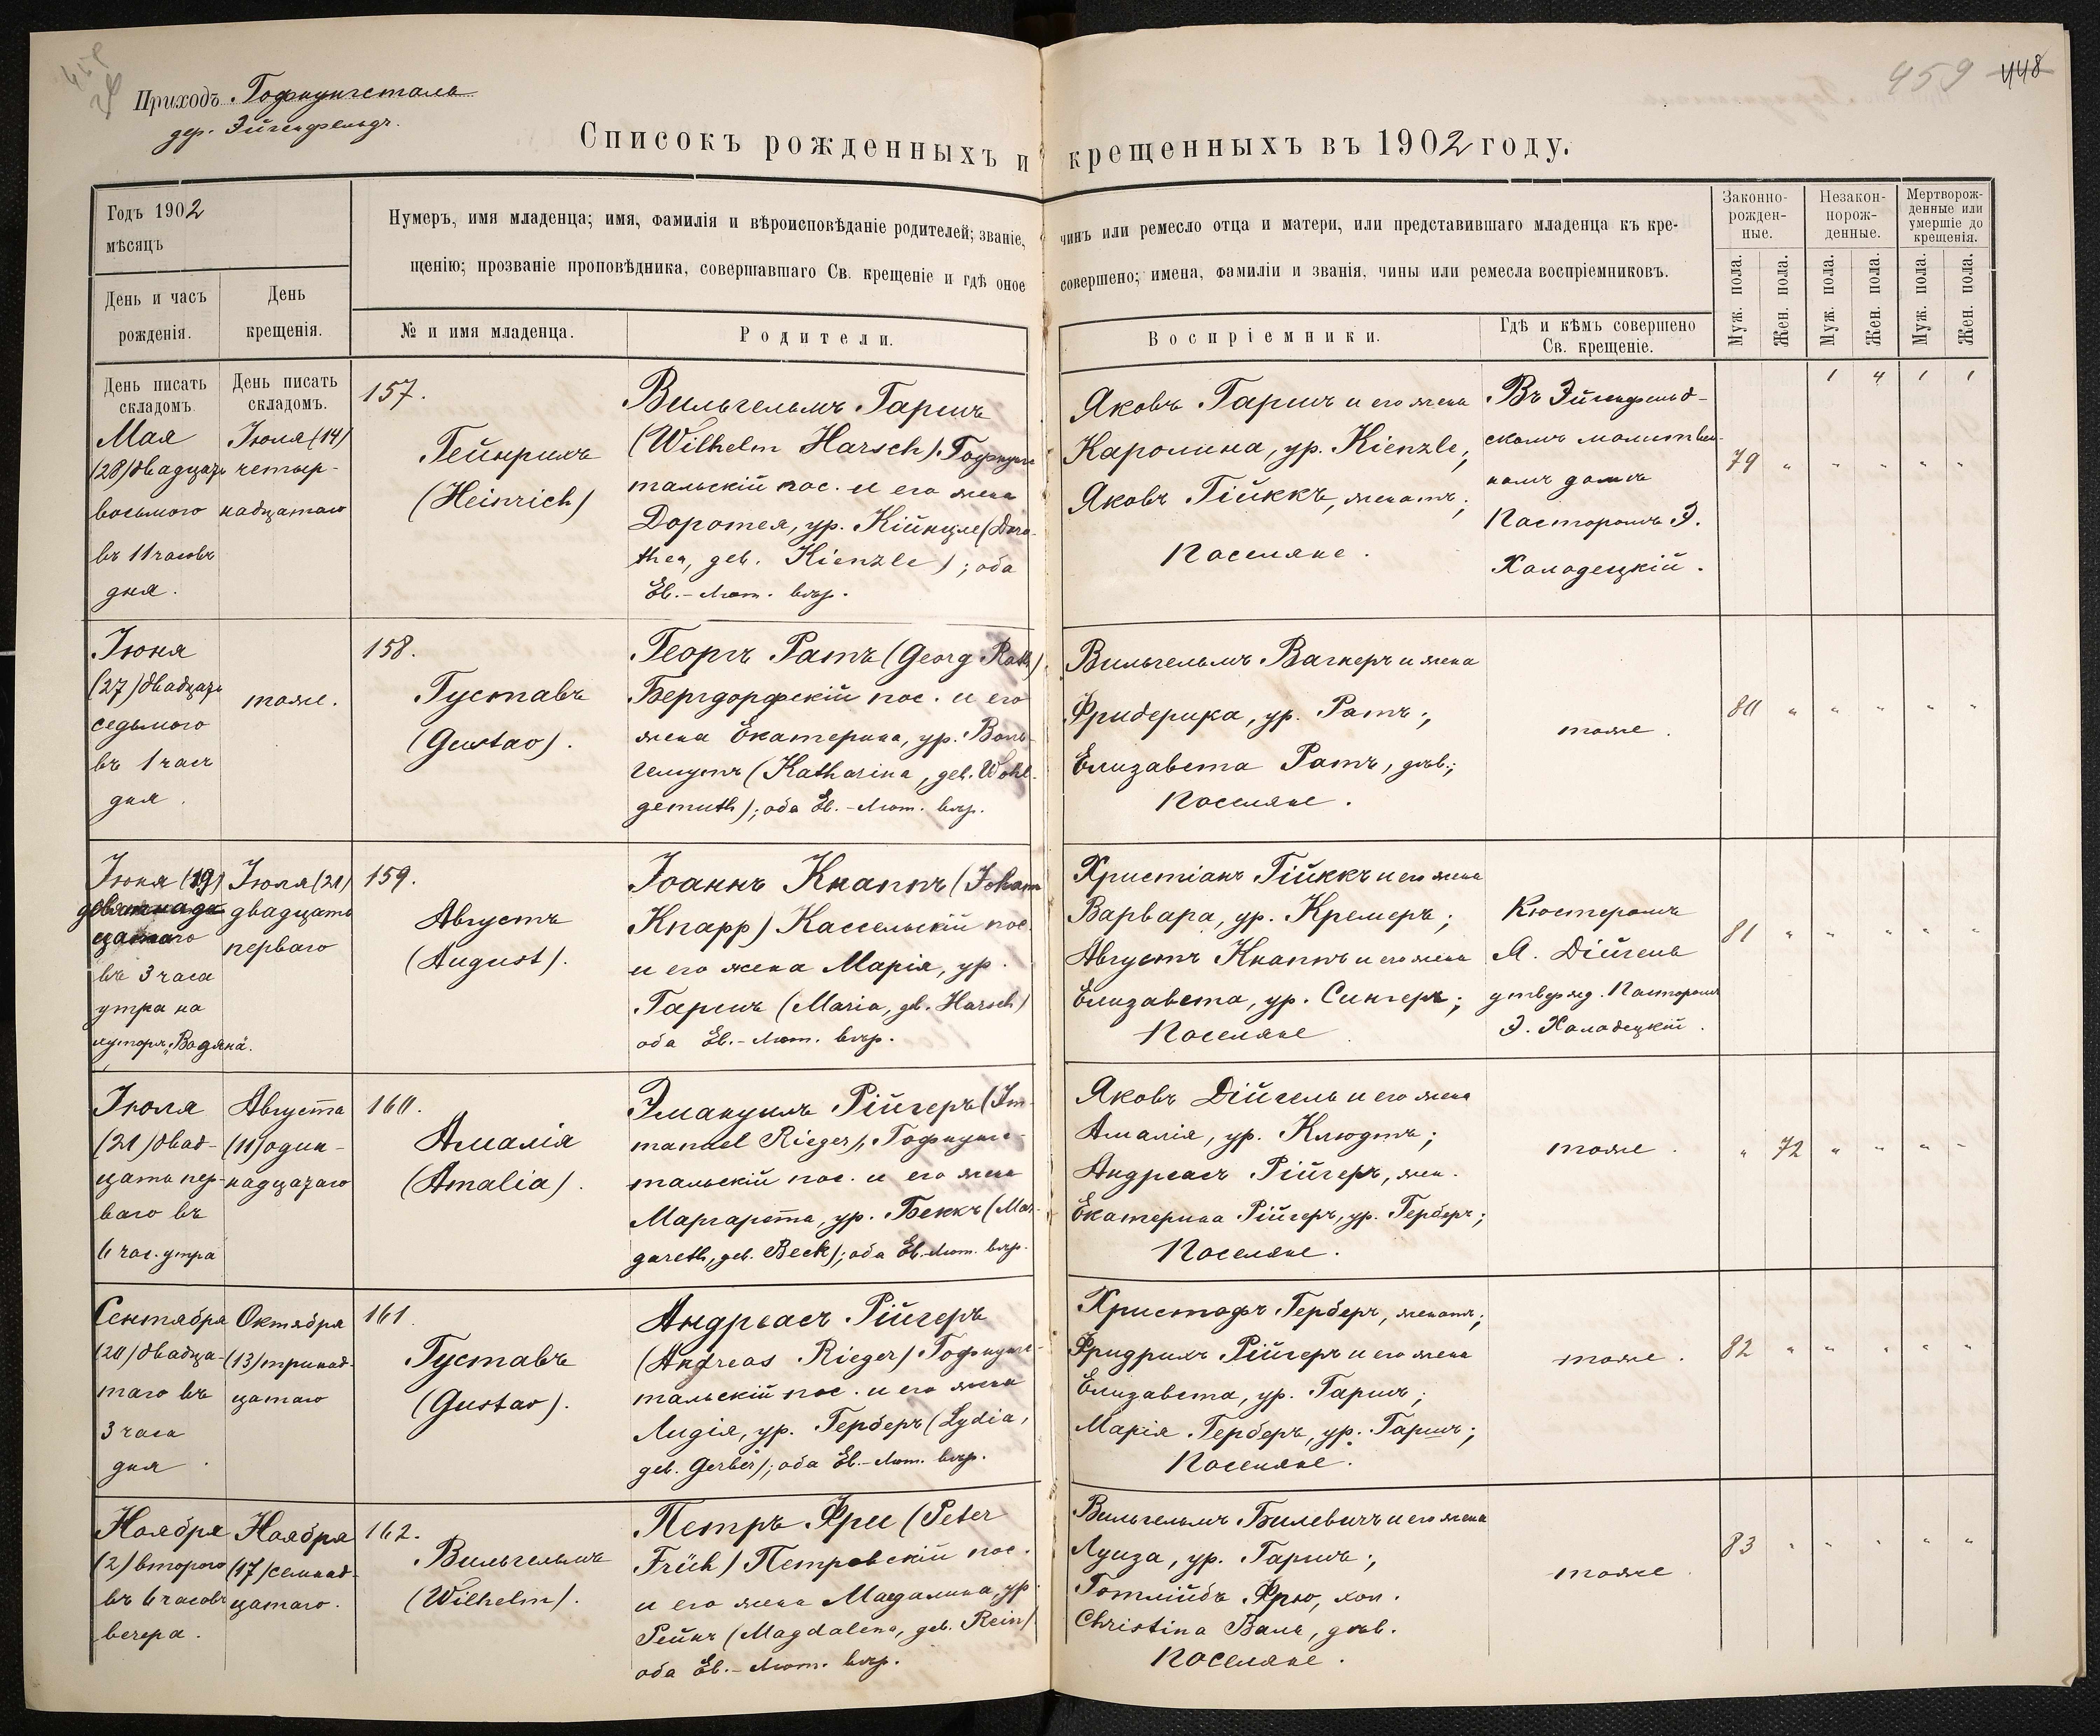 459 448
Приходъ Гофнунгсталь
дер. Эйгенфельдъ.
Списокъ рожденныхъ и крещенныхъ въ 1902 году.
Годъ 1902
мѣсяцъ
День и часъ
рожденія.
День
крещенія.
Нумеръ, имя младенца; имя, фамилія и вѣроисповѣданіе родителей; званіе, чинъ или ремесло отца и матери, или представившаго младенца къ кре-
щенію; прозваніе проповѣдника, совершавшаго Св. крещеніе и гдѣ оное совершено; имена, фамиліи и званія, чины или ремесла воспріемниковъ.
№ и имя младенца.
Родители.
Воспріемники.
Гдѣ и кѣмъ совершено
Св. крещеніе.
Законно-
рожден-
ные.
Незакон-
норож-
денные.
Мертворож-
денные или
умершіе до
крещенія.
Муж. пола.
Жен. пола.
Муж. пола.
Жен. пола.
Муж. пола.
Жен. пола.
День писать
складомъ.
День писать
складомъ.
1 4 1 1
Мая
(28) двадцать
восьмого
въ 11 часовъ
дня.
Іюля (14)
четыр-
надцатаго
157.
Гейнрихъ
(Heinrich)
Вильгельмъ Гаршъ
(Wilhelm Harsch), Гофнунгс
тальскій пос. и его жена
Доротея, ур. Кійнцле (Doro-
thea, geb. Kienzle); оба
Ев.-Лют. вѣр.
Яковъ Гаршъ и его жена
Каролина, ур. Kienzle;
Яковъ Гійккъ, женатъ;
Поселяне.
Въ Эйгенфельд-
скомъ молитвен-
номъ домѣ
Пасторомъ Э.
Холодецкій.
79 " " " " "
Іюня
(27) двадцать
седьмого
въ 1 часъ
дня.
тоже.
158.
Густавъ
(Gustav).
Георгъ Ратъ (Georg Rath)
Бергдорфскій пос. и его
жена Екатерина, ур. Воль-
гемутъ (Katharina, geb. Wohl-
gemuth); оба Ев.-Лют. вѣр.
Вильгельмъ Вагнеръ и жена
Фридерика, ур. Ратъ;
Елизавета Ратъ, дѣв.;
Поселяне.
тоже.
80 " " " " "
Іюня (19)
девятнад-
цатаго
въ 3 часа
утра на
хуторѣ „Водяна".
Іюля (21)
двадцать
перваго
159.
Августъ
(August).
Іоаннъ Кнаппъ (Johann
Knapp) Кассельскій пос.
и его жена Марія, ур.
Гаршъ (Maria, geb. Harsch)
оба Ев.-Лют. вѣр.
Христіанъ Гійккъ и его жена
Варвара, ур. Кремеръ;
Августъ Кнаппъ и его жена
Елизавета, ур. Сингеръ;
Поселяне
Кюстеромъ
А. Дійгель
утвержд. Пасторомъ
Э. Холодецкій.
81 " " " " "
Іюля
(21) двад-
цать пер-
ваго въ
6 час. утра
Августа
(11) один-
надцатаго
160.
Амалія
(Amalia).
Эмануилъ Рійгеръ (Im-
manuel Rieger), Гофнунгс-
тальскій пос. и его жена
Маргарета, ур. Беккъ (Mar-
gareth, geb. Beck); оба Ев.-Лют. вѣр.
Яковъ Дійгель и его жена
Амалія, ур. Клюдтъ;
Андреасъ Рійгеръ, жен.
Екатерина Рійгеръ, ур. Герберъ;
Поселяне.
тоже.
" 72 " " " "
Сентября
(20) двадца-
таго въ
3 часа
дня.
Октября
(13) тринад-
цатаго
161.
Густавъ
(Gustav).
Андреасъ Рійгеръ
(Andreas Rieger) Гофнунгс-
тальскій пос. и его жена
Лидія, ур. Герберъ (Lydia,
geb. Gerber); оба Ев.-Лют. вѣр.
Христофъ Герберъ, женатъ;
Фридрихъ Рійгеръ и его жена
Елизавета, ур. Гаршъ;
Марія Герберъ, ур. Гаршъ;
Поселяне.
тоже.
82 " " " " "
Ноября
(2) второго
въ 6 часовъ
вечера.
Ноября
(17) семнад-
цатаго.
162.
Вильгельмъ
(Wilhelm).
Петръ Фри (Peter
Früh) Петровскій пос.
и его жена Магдалина, ур.
Рейнъ (Magdalena, geb. Rein)
оба Ев.-Лют. вѣр.
Вильгельмъ Билевичъ и его жена
Луиза, ур. Гаршъ;
Готлійбъ Фрю, хол.
Christina Валь, дѣв.
Поселяне.
тоже.
83 " " " " "